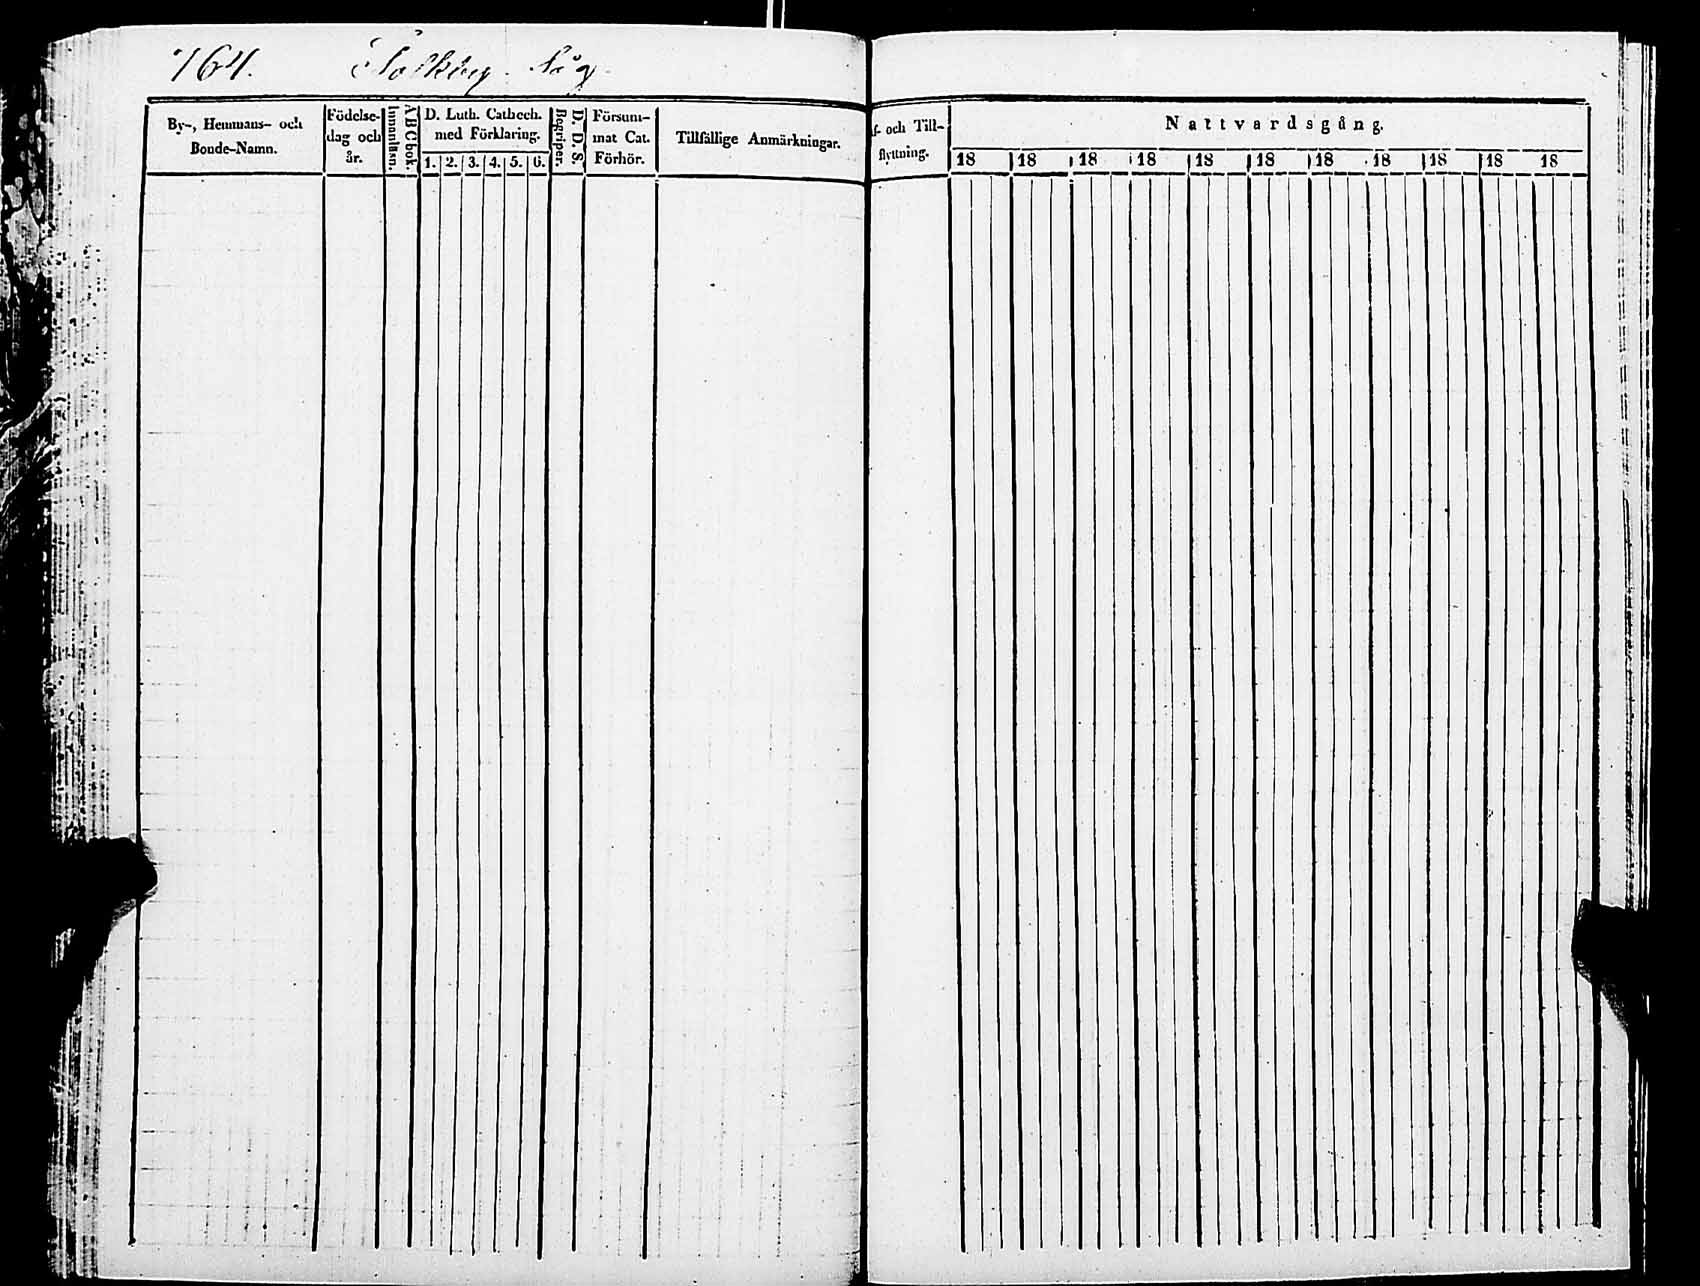 164. Solkbg. Såg.
By-, Hemmans- och
Bonde-Namn.
Födelse-
dag och
år.
Innanläsn.
ABC bok.
D. Luth. Cathech.
med Förklaring.
1. 2. 3. 4. 5. 6.
Begriper.
D. D. S.
Försum-
mat Cat.
Förhör.
Tillfällige Anmärkningar.
f- och Till-
flyttning.
Nattvardsgång.
18 18 18 18 18 18 18 18 18 18 18